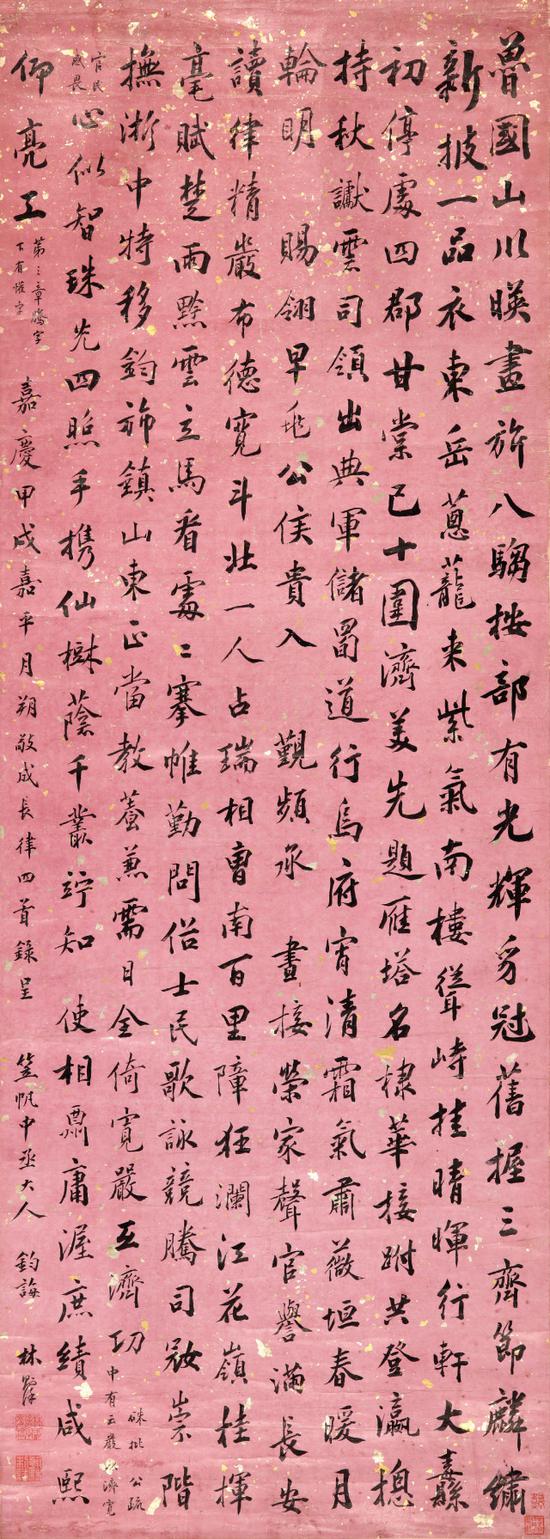 魯國山川暎畫旂八騶按部有光輝豸冠舊握三齊節麟繡
新披一品衣東岳蔥蘢来紫氣南樓聳峙挂晴暉行軒大纛縣
初停處四郡甘棠已十圍濟美先題雁塔名棣華接跗共登瀛揔
持秋讞雲司領出典軍儲蜀道行烏府宵清霜氣肅薇垣春暖月
輪明 賜翎早 公侯貴入 覲頻承 晝接榮家聲官譽滿長安
讀律精嚴布德寬斗壯一人占瑞相曹南百里障狂瀾江花嶺桂揮
毫賦楚雨黔雲立馬看處二搴帷勤問俗士民歌詠競騰司敓崇階
撫淅中特移鈞斾鎮山東正當教養兼需日全倚寬嚴互濟功 硃批公疏
中有云嚴以濟寬
官民
感畏 心似智珠光四照手携仙樹蔭千叢竚知 使相鼐庸渥庶績咸熙
仰亮工 第三章騰字
下有懽字 嘉慶甲戌嘉平月朔敬成長律四首錄呈 笠帆中丞大人 鈞誨 林